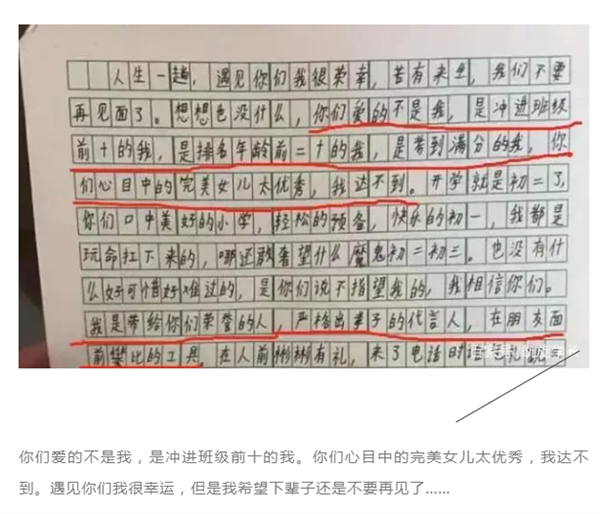 人生一趟，遇见你们我很荣幸，若有来生，我们不要
再见面了。想想也没什么，你们爱的不是我，是冲进班级
前十的我，是排名年龄前二十的我，是考到满分的我，你
们心目中的完美女儿太优秀，我达不到。开学就是初二了，
你们口中美好的小学，轻松的预备，快乐的初一，我都是
玩命扛下来的，哪还敢奢望什么魔鬼初二初三。也没有什
么好可惜好难过的，是你们说不指望我的，我相信你们。
我是带给你们荣誉的人，严格出孝子的代言人，在朋友面
前攀比的工具。在人前彬彬有礼，来了电话时
你们爱的不是我，是冲进班级前十的我。你们心目中的完美女儿太优秀，我达不
到。遇见你们我很幸运，但是我希望下辈子还是不要再见了……